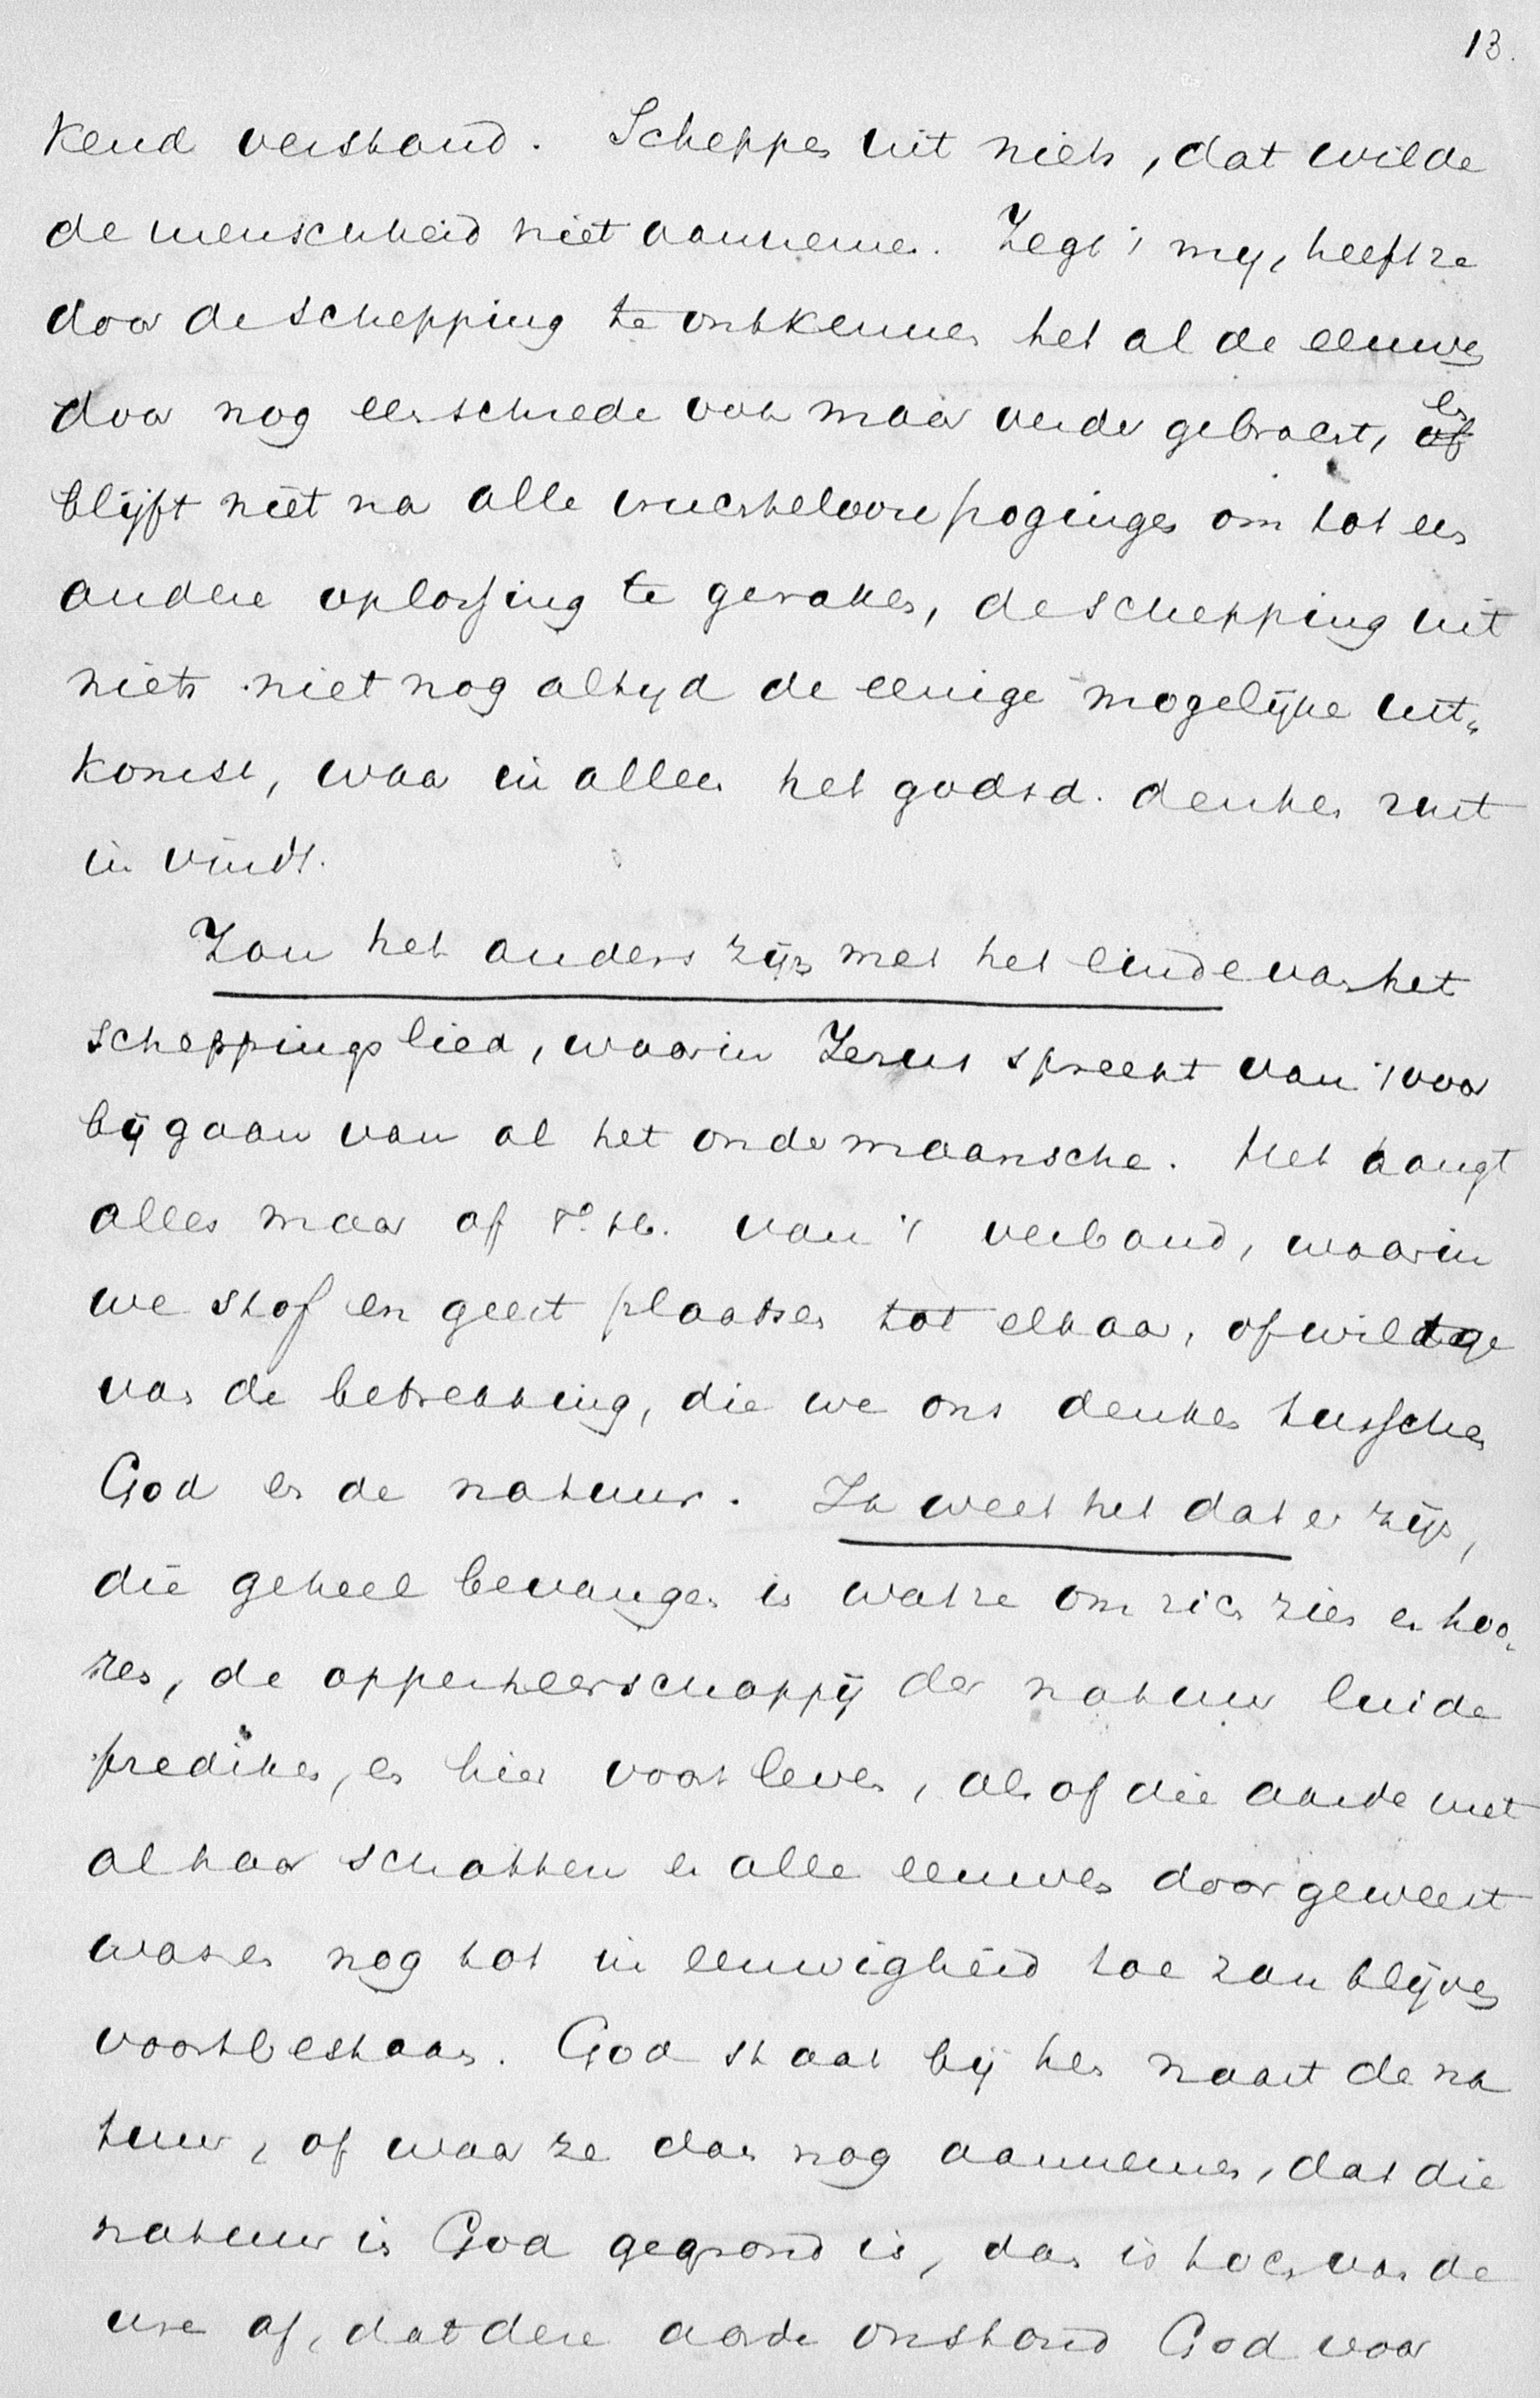 13.
kend verstand. Scheppen uit niets, dat wilde
de menschheid niet aannemen. Zegt 't mij, heeft ze
door de schepping te ontkennen het al de eeuwen
door nog een schrede ook maar verder gebracht, en
blijft niet na alle vruchtelooze pogingen om tot een
andere oplossing te geraken, de schepping uit
niets niet nog altijd de eenige mogelijke uit„
komst, waar in alleen het godsd. denken rust
in vindt.
Zou het anders zijn met het einde van het
scheppingslied, waarin Jezus spreekt van 't voor
bijgaan van al het ondermaansche. Het hangt
alles maar af v. h. van 't verband, waarin
we stof en geest plaatsen tot elkaar, of wilt ge
van de betrekking, die we ons denken tusschen
God en de natuur. Ik weet het dat er zijn,
die geheel bevangen in wat ze om zich zien en hoo„
ren, de opperheerschappij der natuur luide
prediken, en hier voort leven, als of die aarde met
al haar schatten er alle eeuwen door geweest
was en nog tot in eeuwigheid toe zou blijven
voortbestaan. God staat bij hen naast de na
tuur, of waar ze dan nog aannemen, dat die
natuur in God gegrond is, dan is toch van de
ure af, dat deze aarde onstond God voor